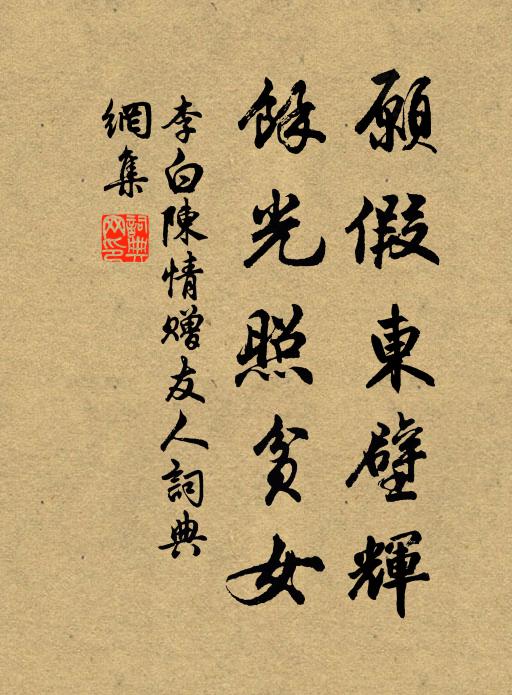 願假東壁輝
餘光照貧女
李白陳情贈友人詞典
網集
詞典
网印